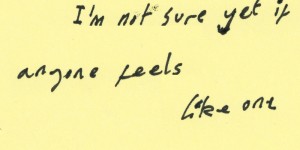 I'm not sure yet if
anyone feels
like one